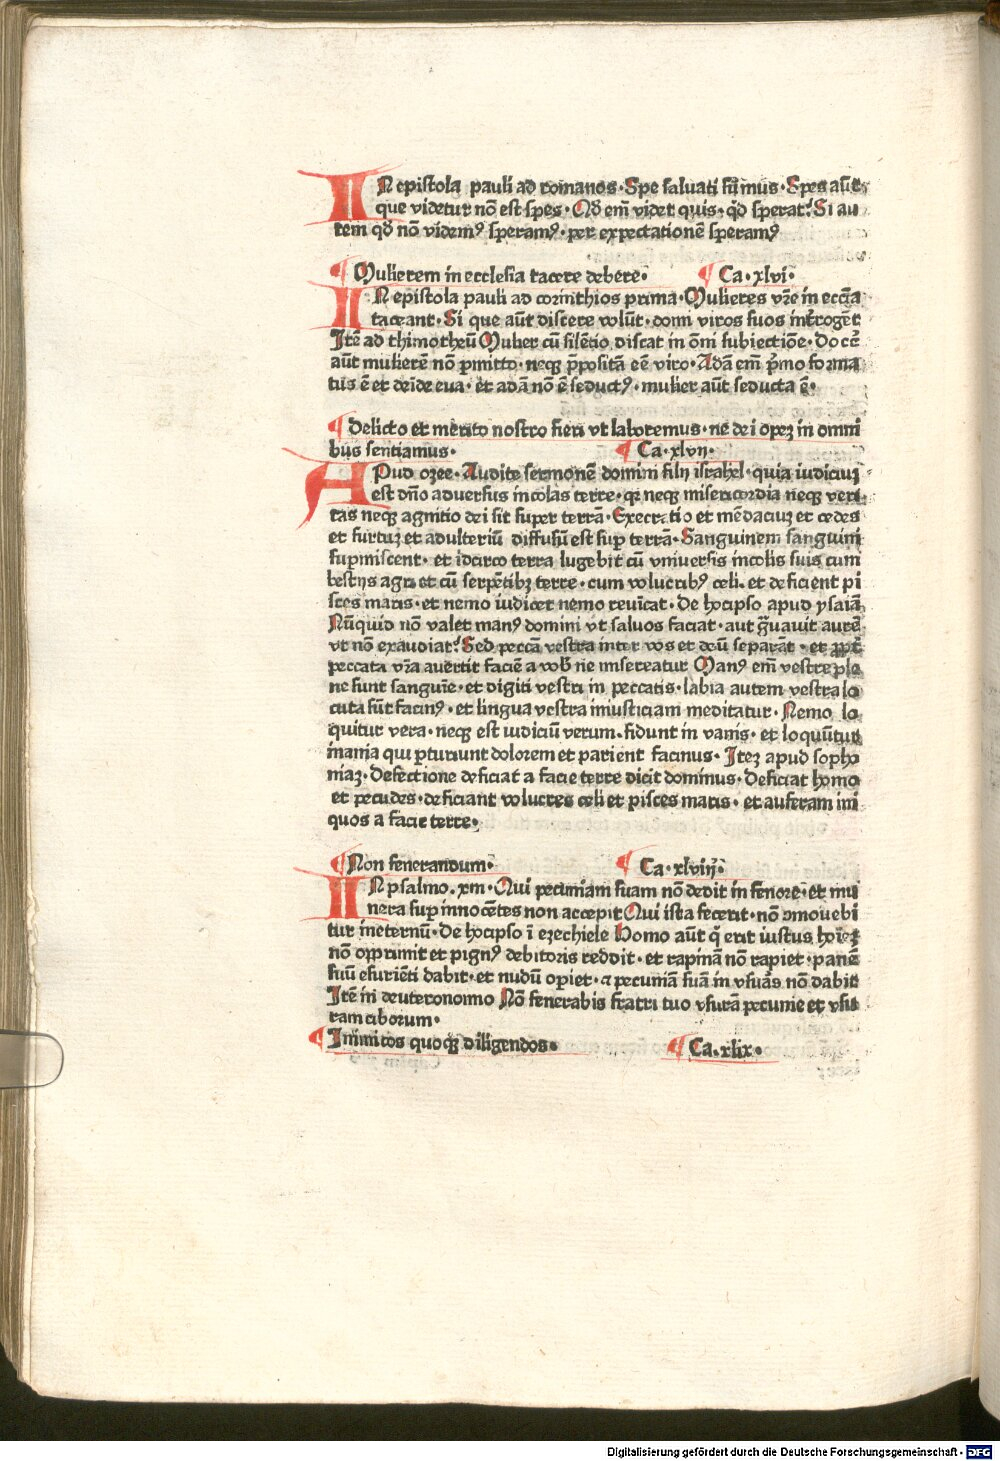 IN epistola pauli ad romanos. Spe saluati sum̃us. Spes aut̃
que videtur nõ est spes. Qd̃ em̃ videt quis. qd̃ sperat? Si au
tem qd̃ nõ videmꝰ speramꝰ. per expectationẽ speramꝰ
¶ Mulierem in ecclesia tacere debere. ¶ Ca. xlvi.
IN epistola pauli ad corinthios prima. Mulieres vr̃e in ecc̃ia
taceant. Si que aut̃ discere volũt. domi viros suos int̃rogẽt
Itẽ ad thimotheũ Mulier cũ silẽtio discat in õni subiectiõe. Docẽ
aũt mulierẽ nõ ꝑmitto. neqꝫ p̃positã eẽ viro. Adã em̃ p̃mo forma
tus ẽ et deĩde eua. et adã nõ ẽ seductꝰ. mulier aũt seducta ẽ.
¶ delicto et merito nostro fieri vt laboremus. ne dei opeꝫ in omni
bus sentiamus. ¶ Ca. xlvii.
APud ozee. Audite sermonẽ domini filij israhel. quia iudiciuꝫ
est dño aduersus incolas terre. qꝛ neqꝫ misericordia neqꝫ veri
tas neqꝫ agnitio dei sit super terrã. Execratio et mẽdaciuꝫ et cedes
et furtuꝫ et adulteriũ diffusũ est suꝑ terrã. Sanguinem sanguini
supmiscent. et idcirco terra lugebit cũ vniuersis incolis suis cum
bestijs agri et cũ serpẽtibꝫ terre. cum volucribꝰ celi. et deficient pi
sces maris. et nemo iudicet nemo reuĩcat. De hocipso apud ysaiã
Nũquid nõ valet manꝰ domini vt saluos faciat. aut g̃uauit aurẽ
vt nõ exaudiat? Sed pecc̃a vestra inter vos et deũ separãt. et ꝓpt̃
peccata vr̃a auertit faciẽ a vob̃ ne misereatur Manꝰ em̃ vestre ple
ne sunt sanguĩe. et digiti vestri in peccatis. labia autem vestra lo
cuta sũt facinꝰ. et lingua vestra iniusticiam meditatur. Nemo lo
quitur vera. neqꝫ est iudiciũ verum. fidunt in vanis. et loquũtur
inania qui ꝑturiunt dolorem et parient facinus. Iteꝫ apud sopho
niaꝫ. Defectione deficiat a facie terre dicit dominus. deficiat homo
et pecudes. deficiant volucres celi et pisces maris. et auferam ini
quos a facie terre.
¶ Non fenerandum. ¶ Ca. xlviij.
IN psalmo. xiii. Qui pecuniam suam nõ dedit in fenore. et mu
nera suꝑ innocẽtes non accepit Qui ista fecerit. nõ ɔmouebi
tur ineternũ. De hocipso ĩ ezechiele Homo aũt q̃ erit iustus hoĩeꝫ
nõ opprimit et pignꝰ debitoris reddit. et rapinã nõ rapiet. panẽ
suũ esuriẽti dabit. et nudũ opiet. ⁊ pecuniã suã in vsurãs nõ dabit
Itẽ in deuteronomio Nõ fenerabis fratri tuo vsurã pecunie et vsu
ram ciborum.
¶ Inimicos quoqꝫ diligendos. ¶ Ca. xlix.
Digitalisierung gefördert durch die Deutsche Forschungsgemeinschaft - DFG